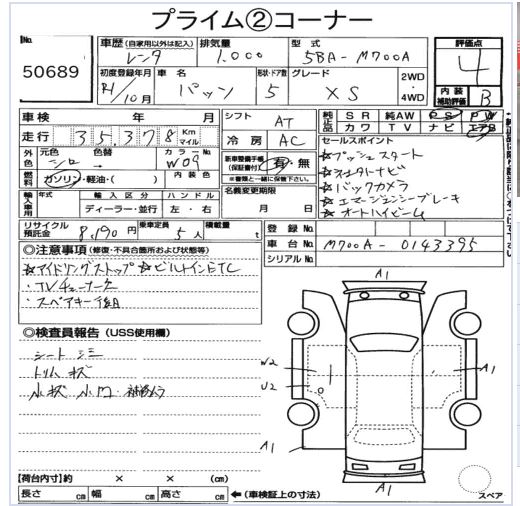 プライム②コーナー
No.
50689
車歴 (自家用以外は記入)
レンタ
排気量
1.000
型 式
5BA-M700A
評価点
4
初度登録年月
R1/10月
車 名
パッソ
形状・ドア数
5
グレード
XS
2WD
・
4WD
内 装
補助評価
B
車検 年 月
シフト
AT
純正品
S R 純AW P S P W
カ ワ T V ナ ビ エアB
走行 35,378 Km マイル
冷 房
AC
セールスポイント
☆プッシュスタート
☆スマートナビ
☆バックカメラ
☆エマージェンシーブレーキ
☆オートハイビーム
外色
元色 色替 カラーNo.
シロ → W09
新車整備手帳
(保証書付)
有・無
※書類と一緒に保管下さい。
燃料
ガソリン・軽油・( )
内 装 色
名義変更期限
月 日
輸入車専用
年式 輸 入 区 分 ハ ン ド ル
ディーラー・並行 左 ・ 右
リサイクル預託金
8,190円
乗車定員
5人
積載量
t
登 録 No.
車 台 No.
M700A-0143395
シリアルNo.
◎注意事項 (修復・不具合箇所および状態等)
☆アイドリングストップ ☆ビルトインETC
・TVチューナー欠
・スペアキー1組
◎検査員報告 (USS使用欄)
シート シミ
トリム キズ
小キズ 小凹・補修ムラ
A1
W2
U2
A1
A1
A1
スペア
【荷台内寸】約 × × (cm)
長さ cm 幅 cm 高さ cm
←(車検証上の寸法)